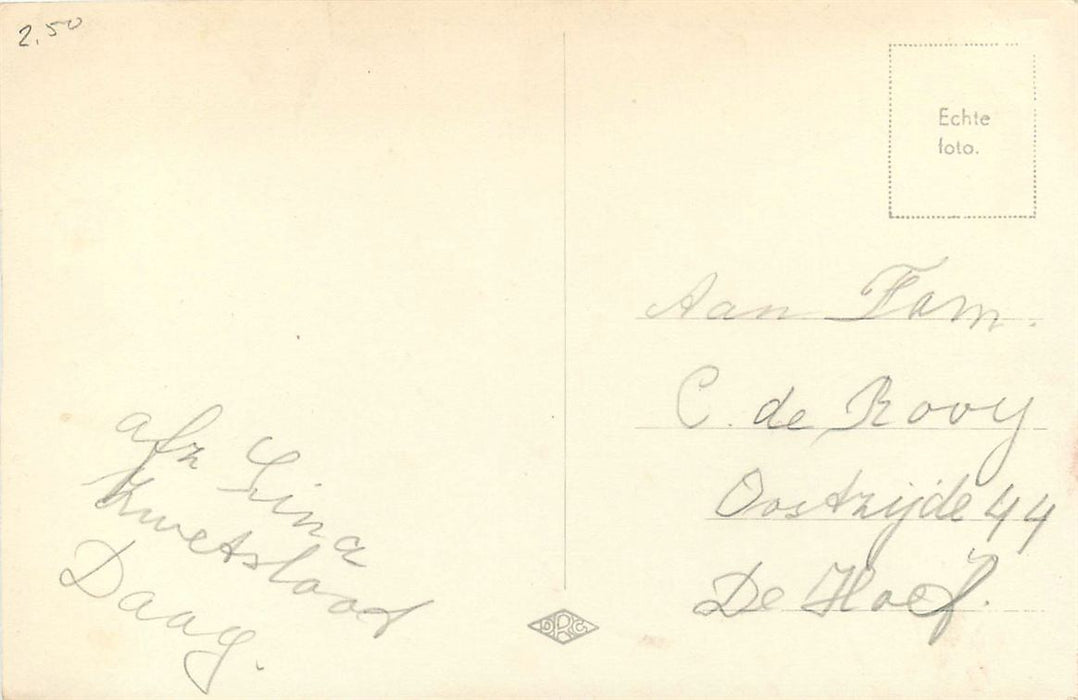 2.50
Echte
foto.
Aan Fam.
C. de Rooy
Oostzijde 44
De Hoef.
afz Lina
Kwetsloot
Daag.